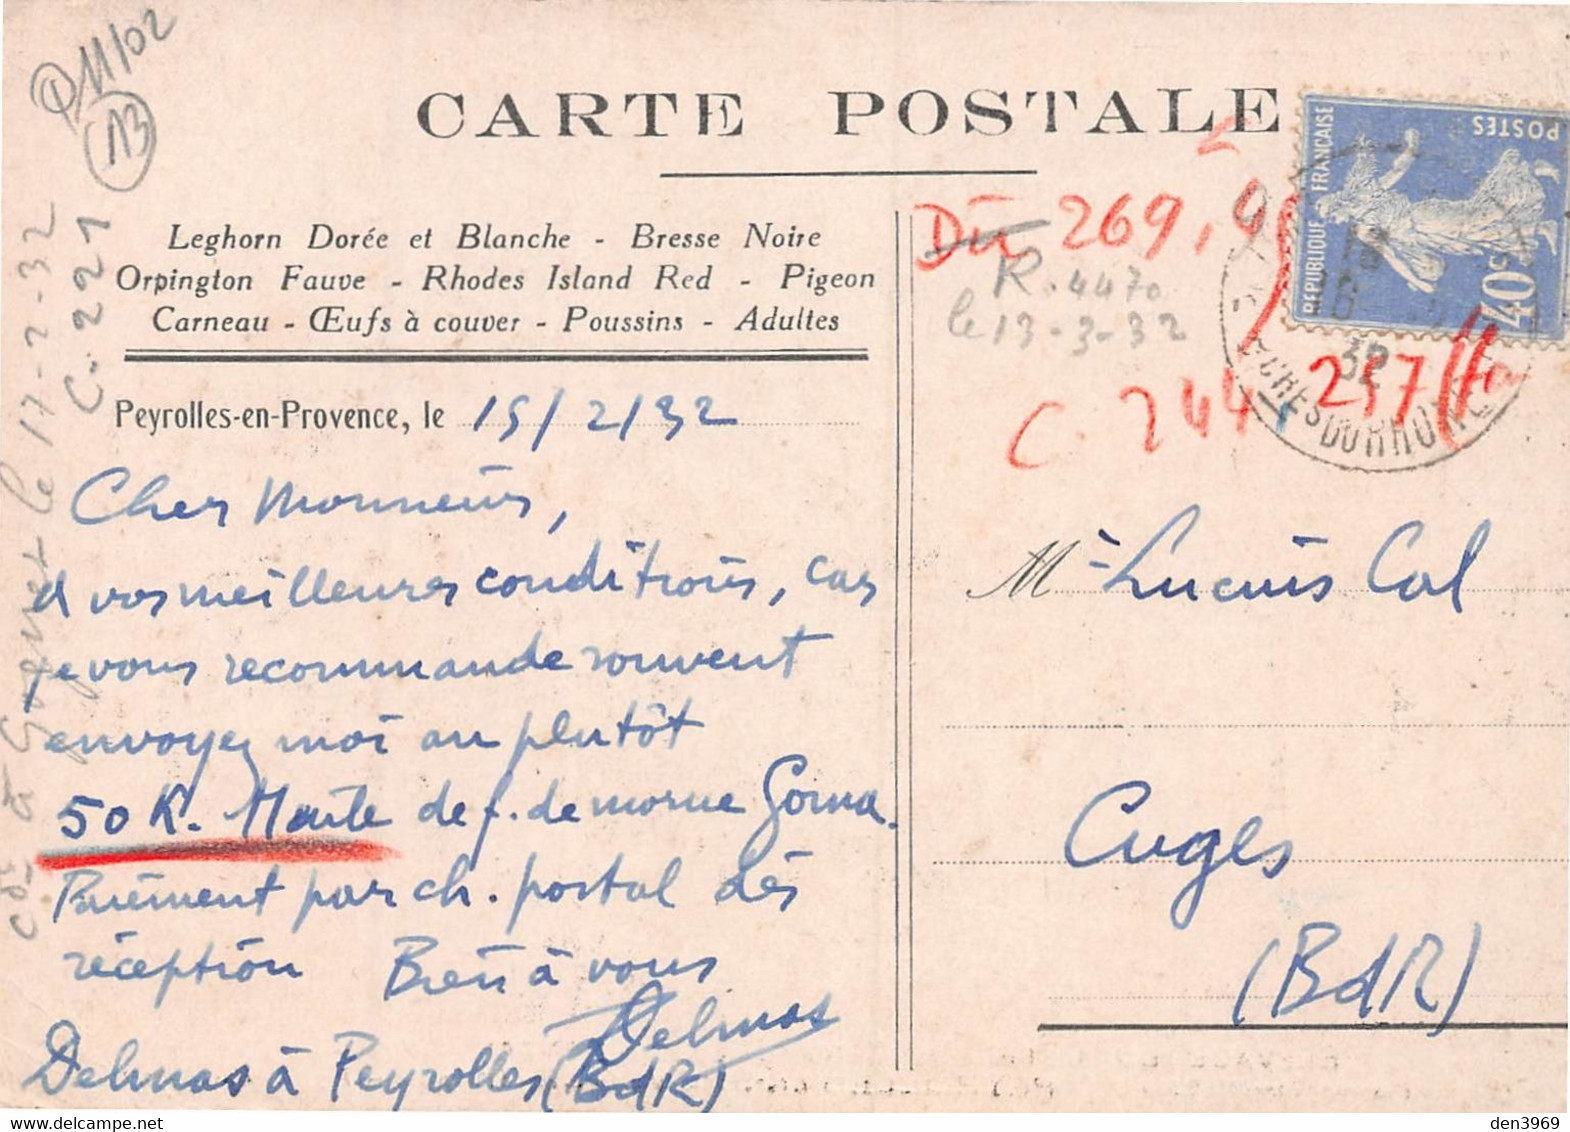 P11/02
13
CARTE POSTALE
Leghorn Dorée et Blanche - Bresse Noire
Orpington Fauve - Rhodes Island Red - Pigeon
Carneau - Œufs à couver - Poussins - Adultes
Peyrolles-en-Provence, le 15/2/32
Cher Monsieur,
à vos meilleures conditions, car
je vous recommande souvent
envoyez moi au plutôt
50 K. Huile de f. de morue
Paiement par ch. postal dès
réception Bien à vous
Delmas
Delmas à Peyrolles (BdR)
le 17-2-32
C. 221
Dû 269,
R. 4470
le 13-3-32
C. 244, 237
REPUBLIQUE FRANÇAISE
POSTES
40c
32
BCHES DU RHONE
Mr Lucien Col
Cuges
(BdR)
delcampe.net
den3969